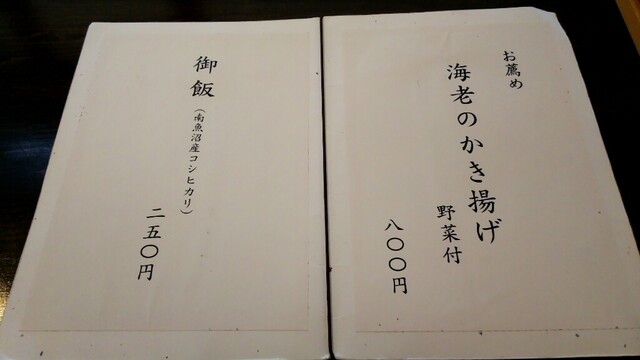 お薦め
海老のかき揚げ
野菜付
八〇〇円
御飯
(南魚沼産コシヒカリ)
二五〇円